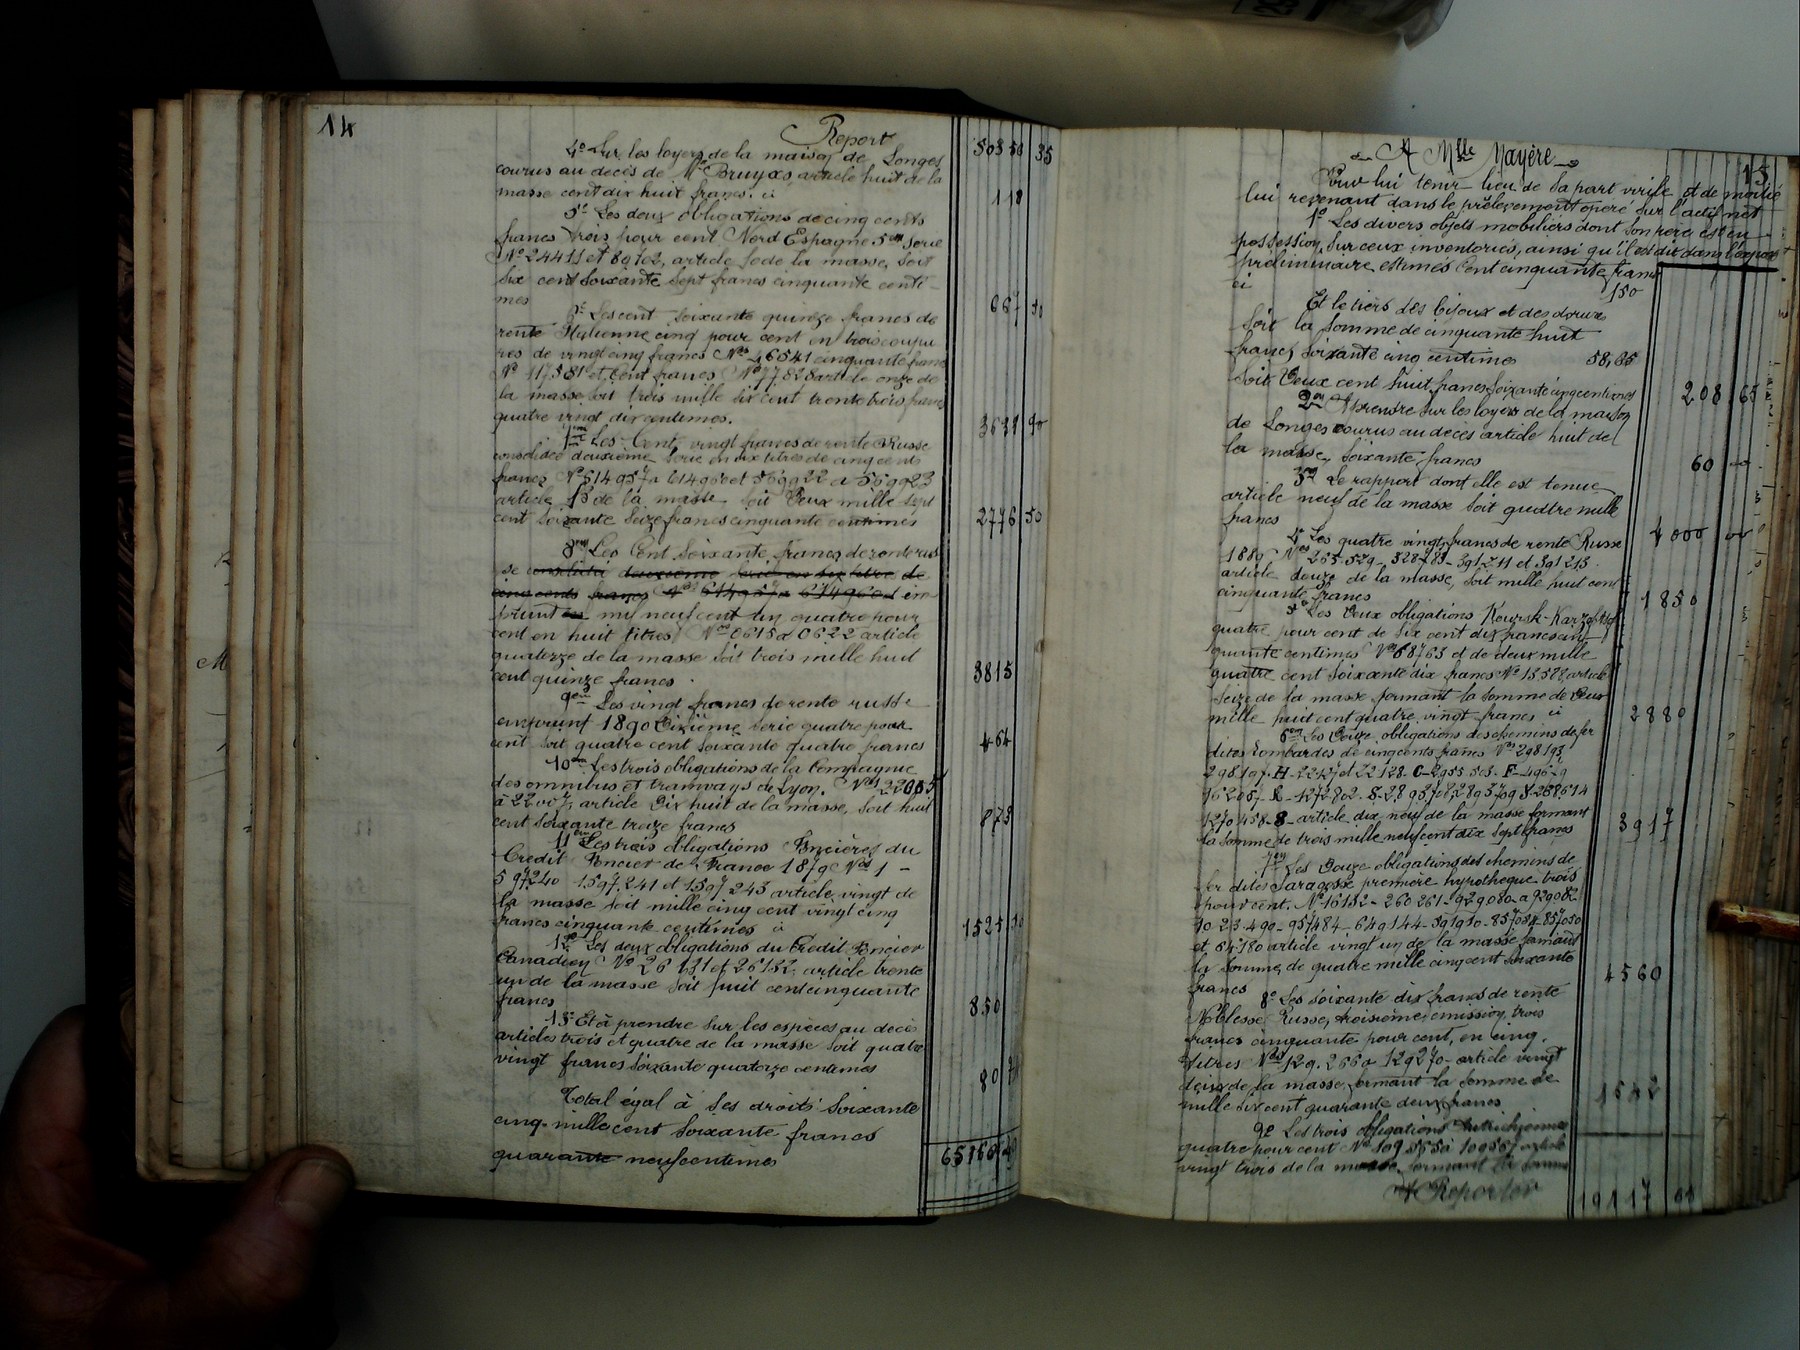 14
Report
4º Sur les loyers de la maison de Longes 50358 35
courus au décès de Mr Bruyas, article huit de la
masse cent dix huit francs. ci 118
5º Les deux obligations de cinq cents
francs trois pour cent Nord Espagne 5em Serie
Nº 24411 et 89702, article de la masse, soit
six cent soixante sept francs cinquante centi-
mes 667 50
6º Les cent soixante quinze francs de
rente Italienne cinq pour cent en trois coupu
res de vingt cinq francs Nos 46541 cinquante francs
Nº 117581 et cent francs Nº 77.828 article onze de
la masse soit trois mille six cent trente trois francs
quatre vingt dix centimes. 3633 90
7me Les Cent vingt francs de rente Russe
consolidée deuxième Serie en six titres de cinq cents
francs Nº 614957 a 614960 et 569922 a 569923
article 13 de la masse soit Deux mille sept
cent soixante seize francs cinquante centimes 2776 50
8me Les Cent soixante francs de rente rus
se consolidé deuxième serie en six titres de
cinq cents francs Nos 614957 a 614960 et em
prunt mil neuf cent un quatre pour
cent en huit titres Nos 0615 a 0622 article
quatorze de la masse soit trois mille huit
cent quinze francs. 3815
9em Les vingt francs de rente russe
emprunt 1890 Dixième Serie quatre pour
cent soit quatre cent soixante quatre francs 464
10em Les trois obligations de la Compagnie
des omnibus et tramways de Lyon. Nos 22005
à 22007, article Dix huit de la masse, soit huit
cent soixante treize francs 873
11em Les trois obligations Foncières du
Crédit Foncier de France 1879 Nos 1 -
597240 - 1.597.241 et 1.597.243 article vingt de
la masse soit mille cinq cent vingt cinq
francs cinquante centimes ci 1525 50
12º Les deux obligations du Crédit Foncier
Canadien Nos 26131 et 26132, article trente
un de la masse soit huit cent cinquante
francs 850
13º Et à prendre sur les espèces au décès
articles trois et quatre de la masse soit quatre
vingt francs soixante quatorze centimes 80 74
Total égal à ses droits soixante
cinq mille cent soixante francs
quarante neuf centimes 65160 49
15
A Mlle Mayère
Pour lui tenir lieu de sa part virile et de moitié
lui revenant dans le prélèvement opéré sur l'actif net
1º Les divers objets mobiliers dont son père est en
possession, sur ceux inventoriés, ainsi qu'il est dit dans l'exposé
préliminaire estimés Cent cinquante francs
ci 150
Et le tiers des bijoux et des dorures
soit la somme de cinquante huit
francs soixante cinq centimes 58,65
Soit Deux cent huit francs soixante cinq centimes 208 65
2em A prendre sur les loyers de la maison
de Longes courus au décès article huit de
la masse, soixante francs 60
3em Le rapport dont elle est tenue
article neuf de la masse soit quatre mille
francs 4000
4º Les quatre vingt francs de rente Russe
1889 Nos 263.529 - 328783 - 391211 et 391213.
article douze de la masse, soit mille huit cent
cinquante francs 1850
5º Les Deux obligations Koursk-Karkof
quatre pour cent de six cent dix francs cin
quante centimes Nº 68763 et de deux mille
quatre cent soixante dix francs Nº 13588, article
seize de la masse formant la somme de Deux
mille huit cent quatre vingt francs ci 2880
6em Les Douze obligations des chemins de fer
dites Lombardes de cinq cents francs Nos 298193
article dix neuf de la masse formant
la somme de trois mille neuf cent dix sept francs 3917
7em Les Douze obligations des chemins de
fer dites Saragosse première hypothèque trois
pour cent. Nº 16132 - 260261 - 929080 a 929082
et 64180 article vingt un de la masse formant
la somme de quatre mille cinq cent soixante
francs 4560
8º Les soixante dix francs de rente
Noblesse Russe, troisième emission, trois
francs cinquante pour cent, en cinq.
titres Nos 129.266 a 129270 - article vingt
deux de la masse, formant la somme de
mille six cent quarante deux francs 1642
9º Les trois obligations Autrichiennes
quatre pour cent Nº 109565 à 109567 article
vingt trois de la masse formant la somme
A Reporter 19117 65